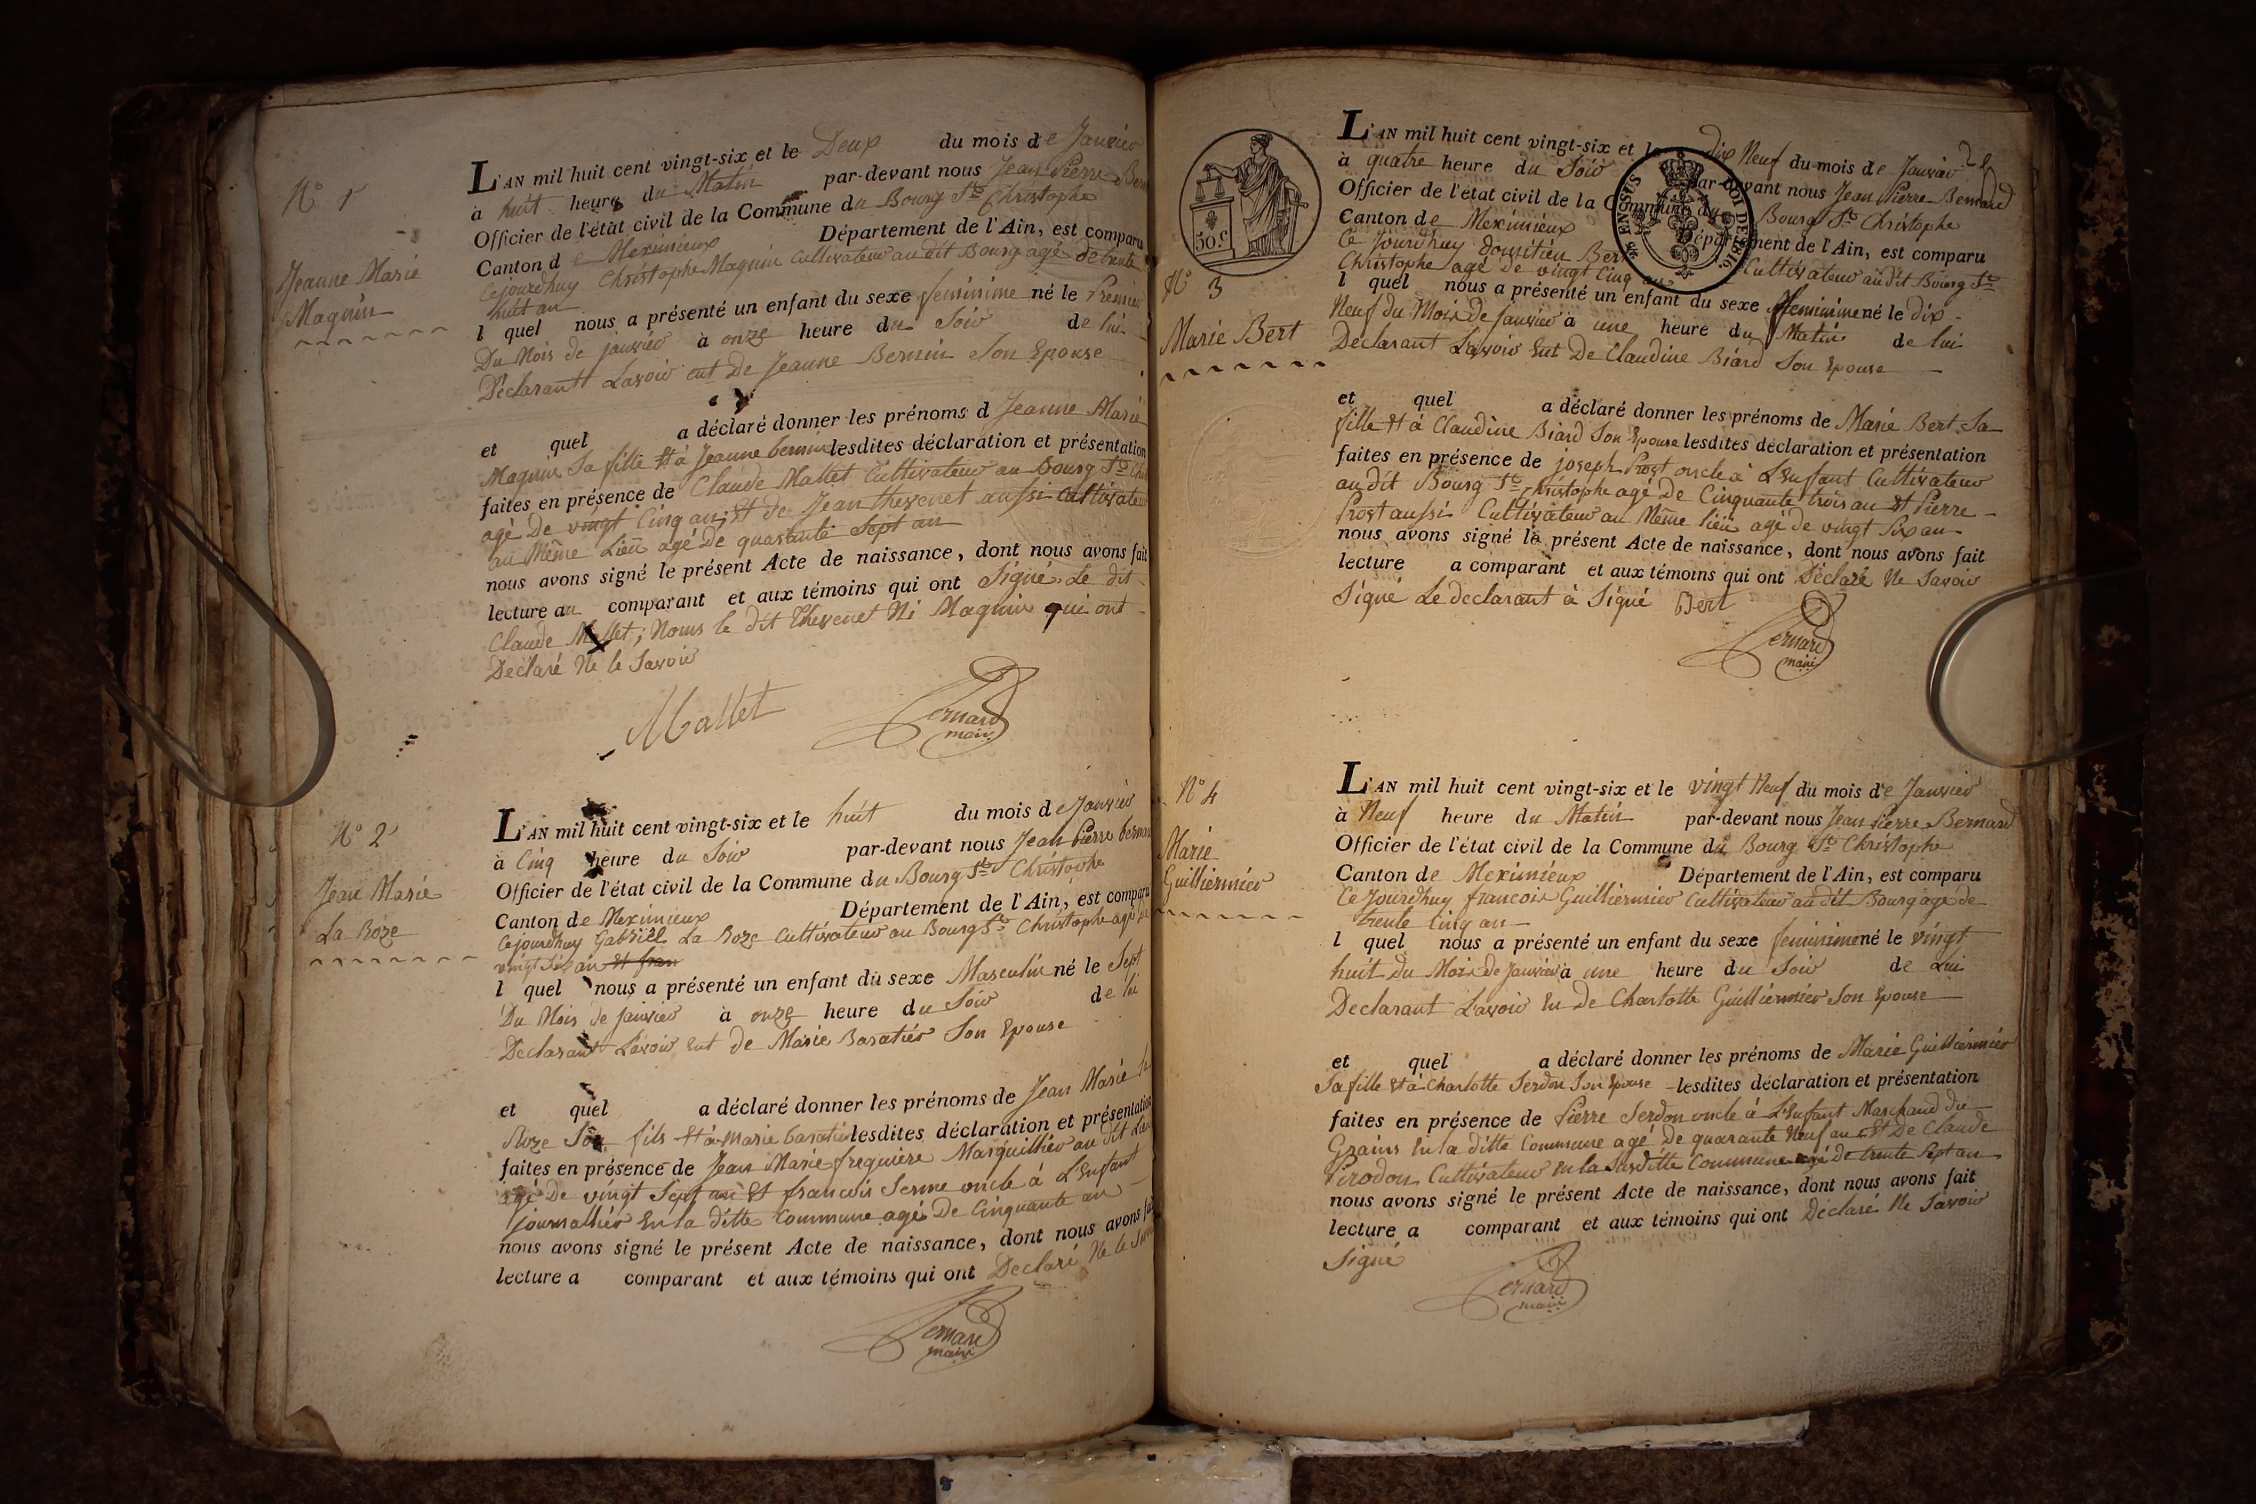 N° 1
Jeanne Marie
Magnin
L'AN mil huit cent vingt-six et le Deux du mois de Janvier
à huit heure du Matin par-devant nous Jean Pierre Bern
Officier de l'état civil de la Commune du Bourg St Christophe
Canton de Meximieux Département de l'Ain, est comparu
Cejourdhuy Christophe Magnin Cultivateur au dit Bourg agé de trente
huit an
l quel nous a présenté un enfant du sexe feminime né le Premier
Du Mois de janvier à onze heure du Soir de lui
Déclarant Lavoir eut de Jeanne Bernin Son Epouse
et quel a déclaré donner les prénoms d Jeanne Marie
Magnin Sa fille Et à Jeanne bernin lesdites déclaration et présentation
faites en présence de Claude Mallet Cultivateur au Bourg St Chri
agé De vingt Cinq an; Et de Jean thevenet aussi Cultivateur
au Même Lieü agé De quarante Sept an
nous avons signé le présent Acte de naissance, dont nous avons fait
lecture au comparant et aux témoins qui ont Signé Le dit
Claude Mallet; Nomis le dit Thevenet Ni Magnin qui ont
Declaré Ne le Savoir
Mallet
Bernard
maire
N° 2
Jean Marie
La Roze
L'AN mil huit cent vingt-six et le huit du mois de Janvier
à Cinq heure du Soir par-devant nous Jean Pierre bernar
Officier de l'état civil de la Commune du Bourg St Christophe
Canton de Meximieux Département de l'Ain, est comparu
Cejourdhuy Gabriel La Roze Cultivateur au Bourg St Christophe agé de
vingt Six an
l quel nous a présenté un enfant du sexe Masculin né le Sept
Du Mois de janvier à onze heure du Soir de lui
Declarant Lavoir Eut de Marie Baratier Son Epouse
et quel a déclaré donner les prénoms de Jean Marie la
Roze Son fils Et à Marie baratier lesdites déclaration et présentation
faites en présence de Jean Marie freguiere Marguillier au dit Lieu
agé De vingt Sept an Et francois Serme oncle à L'Enfant
journallier En la ditte Commune agé De Cinquante an
nous avons signé le présent Acte de naissance, dont nous avons fai
lecture a comparant et aux témoins qui ont Declaré Ne le Savoir
Bernard
maire
50 c
N° 3
Marie Bert
L'AN mil huit cent vingt-six et le dix Neuf du mois de Janvier
à quatre heure du Soir par-devant nous Jean Pierre Bernard
Officier de l'état civil de la Commune du Bourg St Christophe
Canton de Meximieux Département de l'Ain, est comparu
Ce Jourdhuy domitien Bert Cultivateur au dit Bourg St
Christophe agé de vingt Cinq an
l quel nous a présenté un enfant du sexe feminime né le dix
Neuf du Mois de Janvier à une heure du Matin de lui
Déclarant Lavoir Eut De Claudine Biard Son Epouse
et quel a déclaré donner les prénoms de Marie Bert Sa
fille Et à Claudine Biard Son Epouse lesdites déclaration et présentation
faites en présence de joseph Prost oncle à L'Enfant Cultivateur
au dit Bourg St Christophe agé De Cinquante trois an Et Pierre
Prost aussi Cultivateur au Même lieü agé de vingt Six an
nous avons signé le présent Acte de naissance, dont nous avons fait
lecture a comparant et aux témoins qui ont Declaré Ne Savoir
Signé Le declarant à Signé Bert
Bernard
maire
EN SUS
LOI DE 1816.
N° 4
Marie
Guilliermier
L'AN mil huit cent vingt-six et le vingt Neuf du mois de Janvier
à Neuf heure du Matin par-devant nous Jean Pierre Bernard
Officier de l'état civil de la Commune du Bourg St Christophe
Canton de Meximieux Département de l'Ain, est comparu
Ce Jourdhuy francois Guilliermier Cultivateur au dit Bourg agé de
trente Cinq an
l quel nous a présenté un enfant du sexe feminime né le vingt
huit du Mois de Janvier à une heure du Soir de Lui
Declarant Lavoir Eu de Charlotte Guilliermier Son Epouse
et quel a déclaré donner les prénoms de Marie Guilliermier
Sa fille Et à Charlotte Serdon Son Epouse lesdites déclaration et présentation
faites en présence de Pierre Serdon oncle à L'Enfant Marchand du
Grains En la ditte Commune agé De quarante Neuf an Et De Claude
Pirodon Cultivateur En la Susditte Commune agé De trente Sept an
nous avons signé le présent Acte de naissance, dont nous avons fait
lecture a comparant et aux témoins qui ont Declaré Ne Savoir
Signé
Bernard
maire